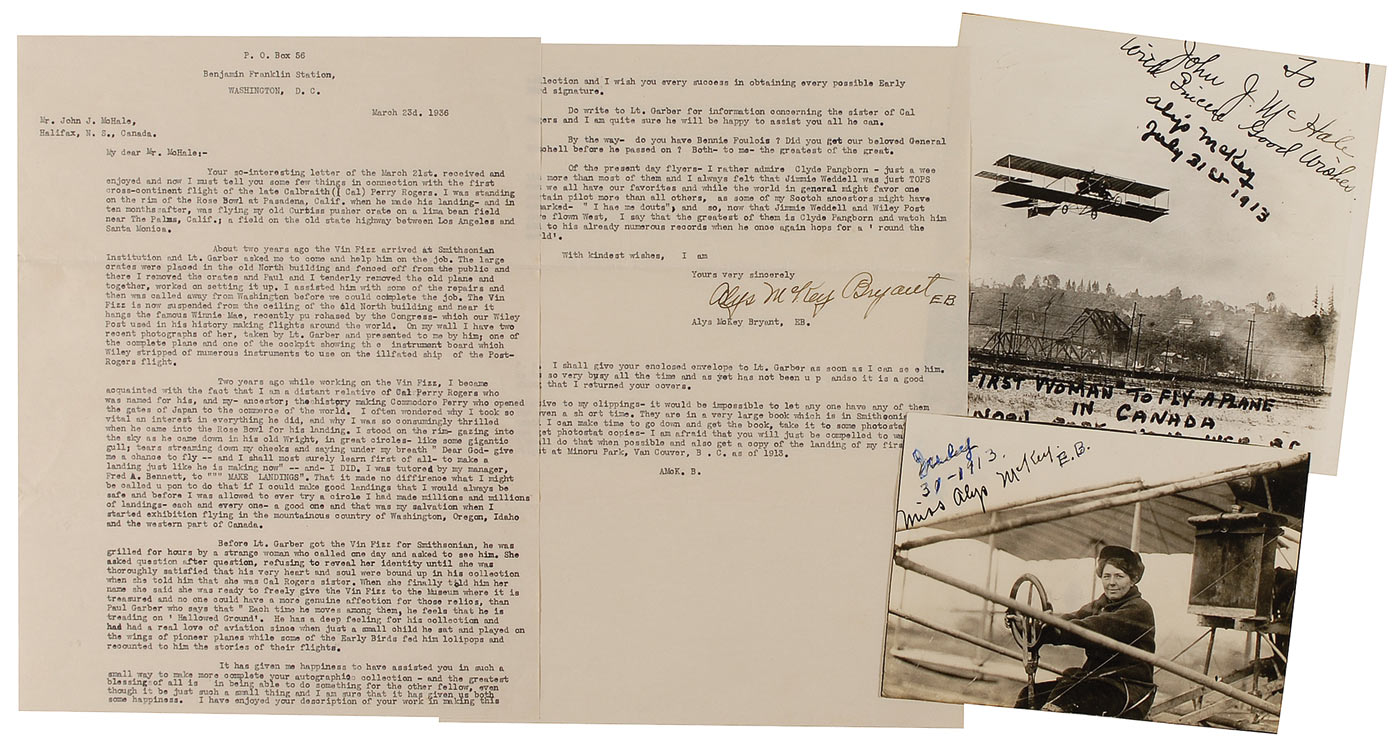 P. O. Box 56
Benjamin Franklin Station,
WASHINGTON, D. C.
March 23d. 1936
Mr. John J. McHale,
Halifax, N. S., Canada.
My dear Mr. McHale:-
Your so-interesting letter of the March 21st, received and
enjoyed and now I must tell you some few things in connection with the first
cross-continent flight of the late Calbraith(( Cal) Perry Rogers. I was standing
on the rim of the Rose Bowl at Pasadena, Calif. when he made his landing- and in
ten months after, was flying my old Curtiss pusher crate on a lima bean field
near The Palms, Calif.; a field on the old state highway between Los Angeles and
Santa Monica.
About two years ago the Vin Fizz arrived at Smithsonian
Institution and Lt. Garber asked me to come and help him on the job. The large
crates were placed in the old North building and fenced off from the public and
there I removed the crates and Paul and I tenderly removed the old plane and
together, worked on setting it up. I assisted him with some of the repairs and
then was called away from Washington before we could complete the job. The Vin
Fizz is now suspended from the ceiling of the old North building and near it
hangs the famous Winnie Mae, recently pu rchased by the Congress- which our Wiley
Post used in his history making flights around the world. On my wall I have two
recent photographs of her, taken by Lt. Garber and presented to me by him; one of
the complete plane and one of the cockpit showing th e instrument board which
Wiley stripped of numerous instruments to use on the illfated ship of the Post-
Rogers flight.
Two years ago while working on the Vin Fizz, I became
acquainted with the fact that I am a distant relative of Cal Perry Rogers who
was named for his, and my- ancestor; the history making Commodore Perry who opened
the gates of Japan to the commerce of the world. I often wondered why I took so
vital an interest in everything he did, and why I was so consumingly thrilled
when he came into the Rose Bowl for his landing. I stood on the rim- gazing into
the sky as he came down in his old Wright, in great circles- like some gigantic
gull; tears streaming down my cheeks and saying under my breath " Dear God- give
me a chance to fly -- and I shall most surely learn first of all- to make a
landing just like he is making now" -- and- I DID. I was tutored by my manager,
Fred A. Bennett, to """ MAKE LANDINGS". That it made no difference what I might
be called u pon to do that if I could make good landings that I would always be
safe and before I was allowed to ever try a circle I had made millions and millions
of landings- each and every one- a good one and that was my salvation when I
started exhibition flying in the mountainous country of Washington, Oregon, Idaho
and the western part of Canada.
Before Lt. Garber got the Vin Fizz for Smithsonian, he was
grilled for hours by a strange woman who called one day and asked to see him. She
asked question after question, refusing to reveal her identity until she was
thoroughly satisfied that his very heart and soul were bound up in his collection
when she told him that she was Cal Rogers sister. When she finally told him her
name she said she was ready to freely give the Vin Fizz to the Museum where it is
treasured and no one could have a more genuine affection for those relics, than
Paul Garber who says that " Each time he moves among them, he feels that he is
treading on ' Hallowed Ground'. He has a deep feeling for his collection and
had had a real love of aviation since when just a small child he sat and played on
the wings of pioneer planes while some of the Early Birds fed him lolipops and
recounted to him the stories of their flights.
It has given me happiness to have assisted you in such a
small way to make more complete your autographic collection - and the greatest
blessing of all is in being able to do something for the other fellow, even
though it be just such a small thing and I am sure that it has given us both
some happiness. I have enjoyed your description of your work in making this
llection and I wish you every success in obtaining every possible Early
d signature.
Do write to Lt. Garber for information concerning the sister of Cal
gers and I am quite sure he will be happy to assist you all he can.
By the way- do you have Bennie Foulois ? Did you get our beloved General
chell before he passed on ? Both- to me- the greatest of the great.
Of the present day flyers- I rather admire Clyde Pangborn - just a wee
more than most of them and I always felt that Jimmie Weddell was just TOPS
we all have our favorites and while the world in general might favor one
tain pilot more than all others, as some of my Scotch ancestors might have
marked- " I hae me douts", and so, now that Jimmie Weddell and Wiley Post
e flown West, I say that the greatest of them is Clyde Pangborn and watch him
d to his already numerous records when he once again hops for a ' round the
ld'.
With kindest wishes, I am
Yours very sincerely
Alys McKey Bryant EB
Alys McKey Bryant, EB.
. I shall give your enclosed envelope to Lt. Garber as soon as I can se e him.
so very busy all the time and as yet has not been u p andso it is a good
g that I returned your covers.
sive to my clippings- it would be impossible to let any one have any of them
ven a sh ort time. They are in a very large book which is in Smithsonia
I can make time to go down and get the book, take it to some photosta
get photostat copies- I am afraid that you will just be compelled to wa
ll do that when possible and also get a copy of the landing of my firs
t at Minoru Park, Van Couver, B . C. as of 1913.
AMcK. B.
To
John J. McHale
With Sincere Good Wishes
Alys McKey
July 31st 1913
"FIRST WOMAN" TO FLY A PLANE
IN CANADA
31-1913.
Miss Alys McKey E.B.